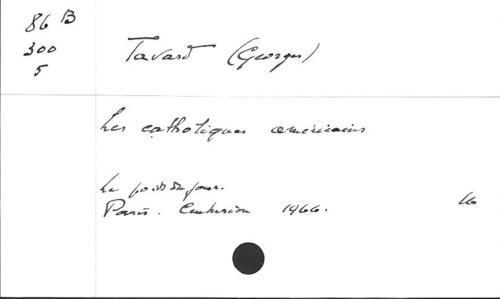 86 B
300
5
Tavard (Georges)
Les catholiques américains
Le point du jour.
Paris. Centurion 1966.
16